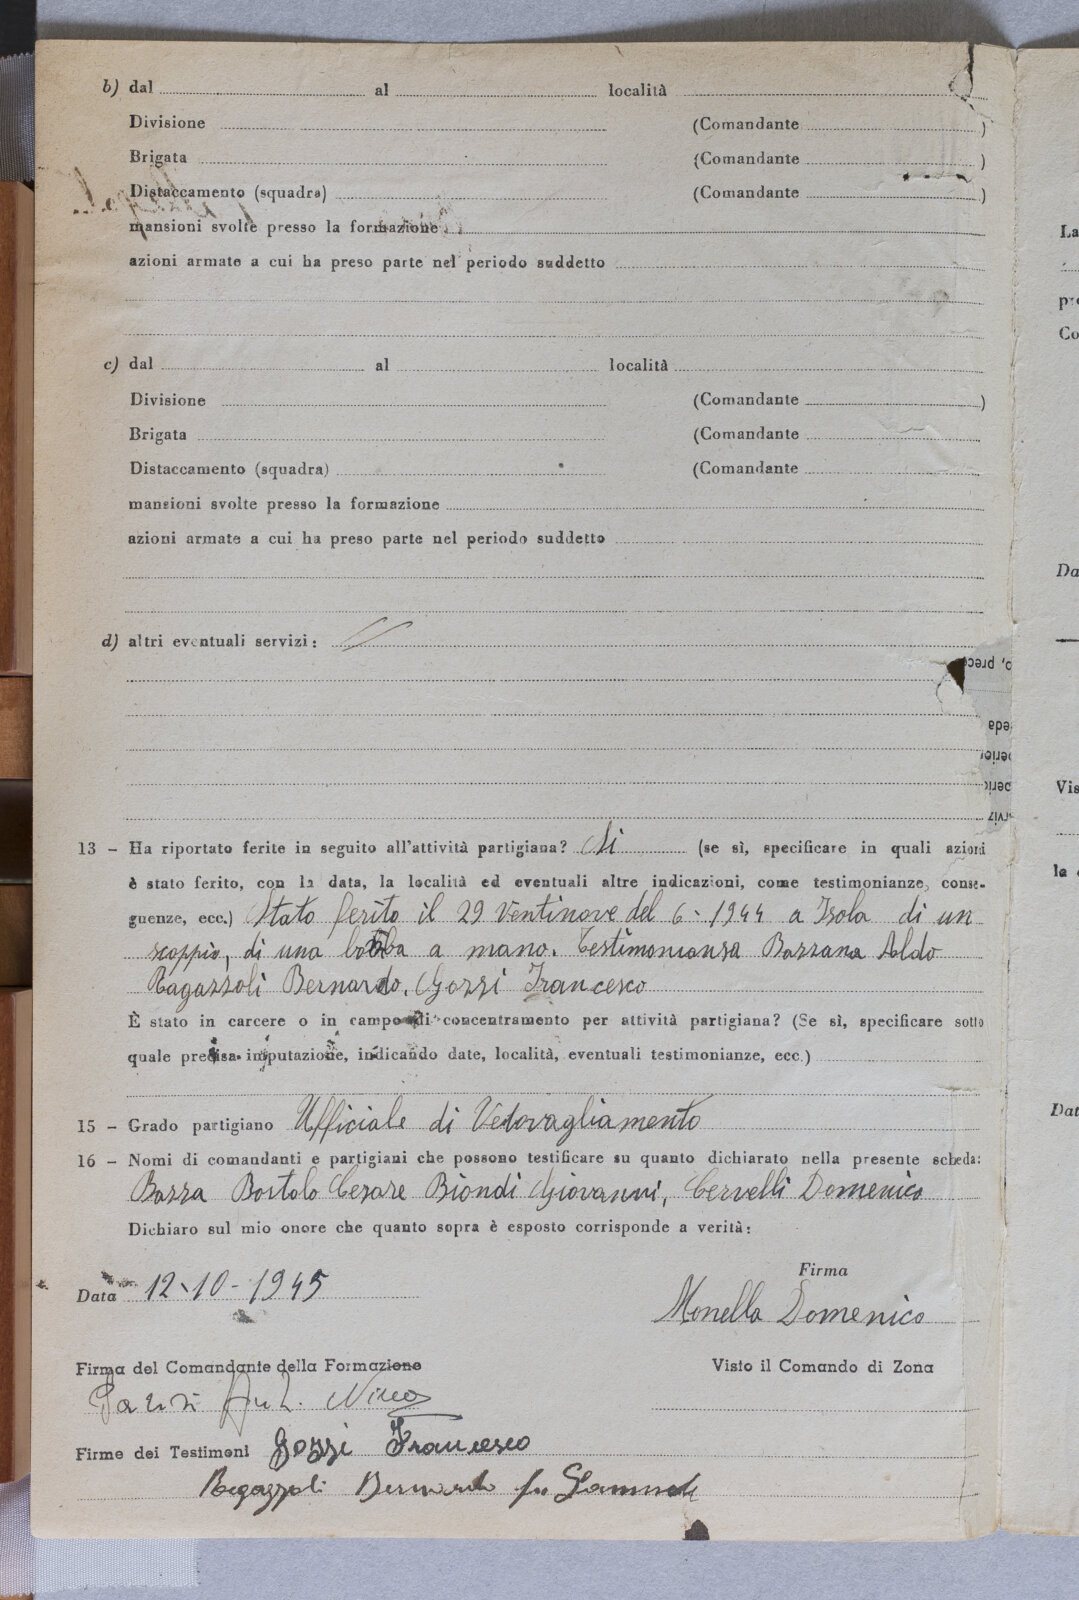 b) dal al località
Divisione (Comandante )
Brigata (Comandante )
Distaccamento (squadra) (Comandante )
mansioni svolte presso la formazione
azioni armate a cui ha preso parte nel periodo suddetto
c) dal al località
Divisione (Comandante )
Brigata (Comandante
Distaccamento (squadra) (Comandante
mansioni svolte presso la formazione
azioni armate a cui ha preso parte nel periodo suddetto
d) altri eventuali servizi:
13 - Ha riportato ferite in seguito all'attività partigiana? Si (se sì, specificare in quali azioni
è stato ferito, con la data, la località ed eventuali altre indicazioni, come testimonianze, conse-
guenze, ecc.) Stato ferito il 29 ventinove del 6-1944 a Isola di un
scoppio, di una bomba a mano. Testimonianza Bazzana Aldo
Ragazzoli Bernardo, Gozzi Francesco
È stato in carcere o in campo di concentramento per attività partigiana? (Se sì, specificare sotto
quale precisa imputazione, indicando date, località, eventuali testimonianze, ecc.)
15 - Grado partigiano Ufficiale di Vetovagliamento
16 - Nomi di comandanti e partigiani che possono testificare su quanto dichiarato nella presente scheda:
Bazza Bortolo Cesare Biondi Giovanni, Cervelli Domenico
Dichiaro sul mio onore che quanto sopra è esposto corrisponde a verità:
Firma
Data 12-10-1945
Monella Domenico
Firma del Comandante della Formazione Visto il Comando di Zona
Nino
Firme dei Testimoni Gozzi Francesco
Ragazzoli Bernardo fu
La
pre
Co
Da
Vis
la
Dat